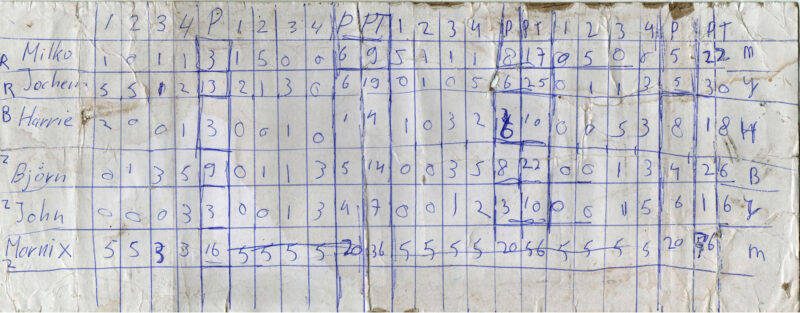 1 2 3 4 P 1 2 3 4 P PT 1 2 3 4 P PT 1 2 3 4 P PT
R Milko 1 0 1 1 3 1 5 0 0 6 9 5 1 1 1 8 17 0 5 0 0 5 22 m
R Jochem 5 5 1 2 13 2 1 3 0 6 19 0 1 0 5 6 25 0 1 1 3 5 30 y
B Harrie 2 0 0 1 3 0 0 1 0 1 4 1 0 3 2 6 10 0 0 5 3 8 18 H
2 Björn 0 1 3 5 9 0 1 1 3 5 14 0 0 3 5 8 22 0 0 1 3 4 26 B
2 John 0 0 0 3 3 0 0 1 3 4 7 0 0 1 2 3 10 0 0 1 5 6 16 y
2 Marnix 5 5 3 3 16 5 5 5 5 20 36 5 5 5 5 20 56 5 5 5 5 20 76 m